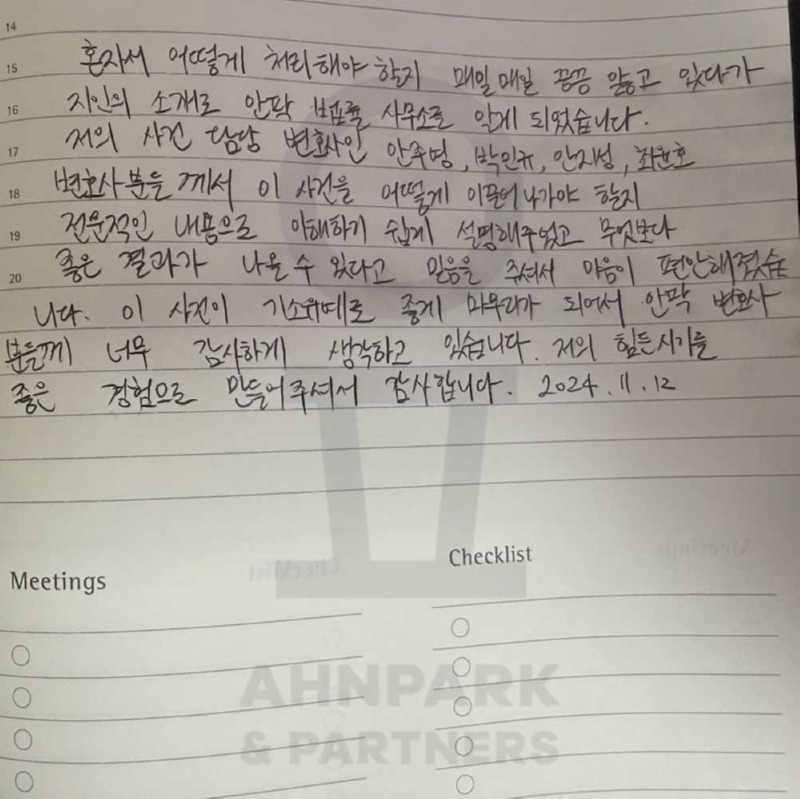 14
15 혼자서 어떻게 처리해야 할지 매일매일 끙끙 앓고 있다가
16 지인의 소개로 안팍 법률 사무소를 알게 되었습니다.
17 저의 사건 담당 변호사인 안주영, 박민규, 안지성, 최윤호
18 변호사분들께서 이 사건을 어떻게 이끌어나가야 할지
19 전문적인 내용으로 이해하기 쉽게 설명해주었고 무엇보다
20 좋은 결과가 나올 수 있다고 믿음을 주셔서 마음이 편안해졌습
니다. 이 사건이 기소유예로 좋게 마무리가 되어서 안팍 변호사
분들께 너무 감사하게 생각하고 있습니다. 저의 힘든시기를
좋은 경험으로 만들어주셔서 감사합니다. 2024.11.12
Checklist
Meetings
AHNPARK
& PARTNERS